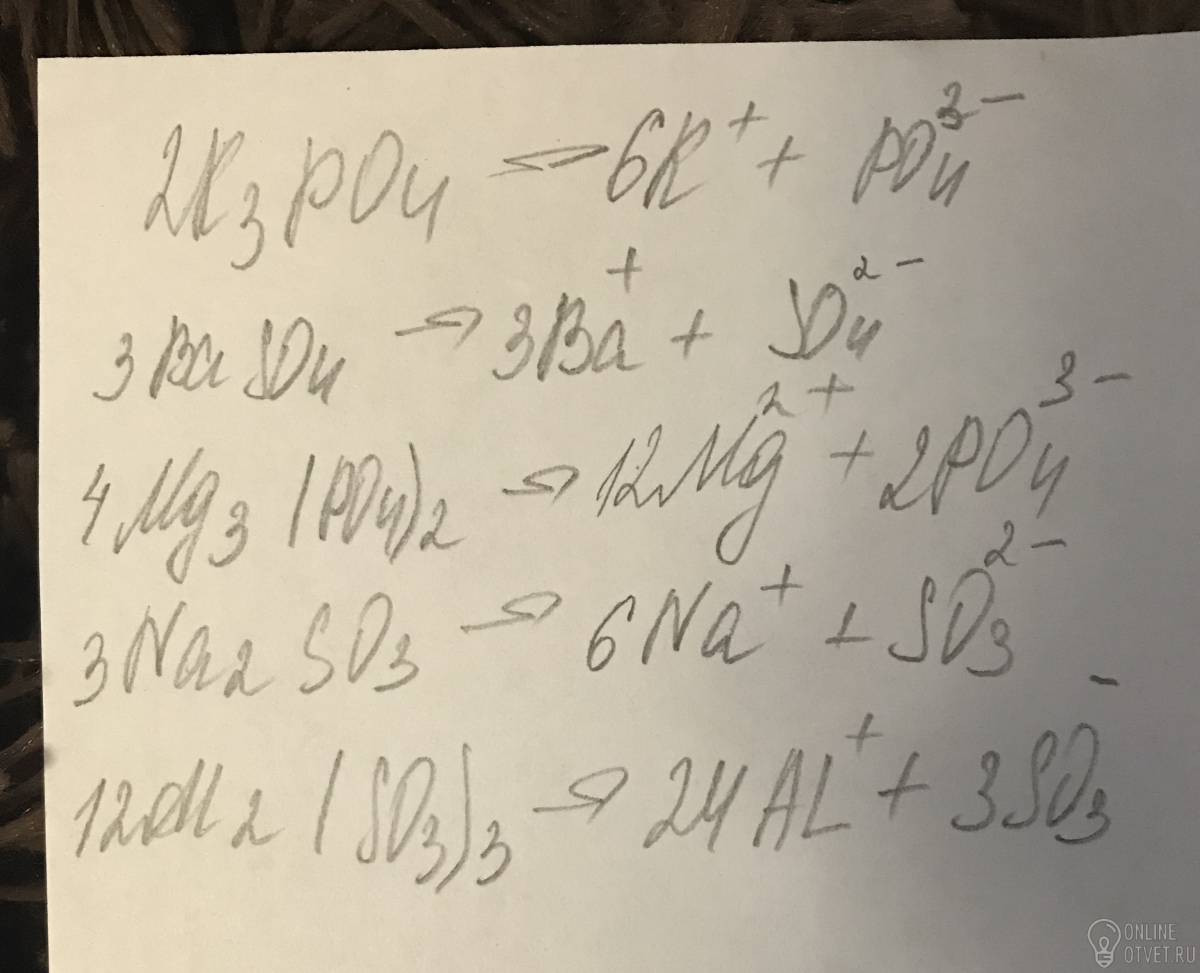 2K3PO4 ⇌ 6K⁺ + PO4³⁻
3BaSO4 ⇌ 3Ba⁺ + SO4²⁻
4Mg3(PO4)2 ⇌ 12Mg²⁺ + 2PO4³⁻
3Na2SO3 ⇌ 6Na⁺ + SO3²⁻
12Al2(SO3)3 ⇌ 24AL⁺ + 3SO3⁻
ONLINE
OTVET.RU